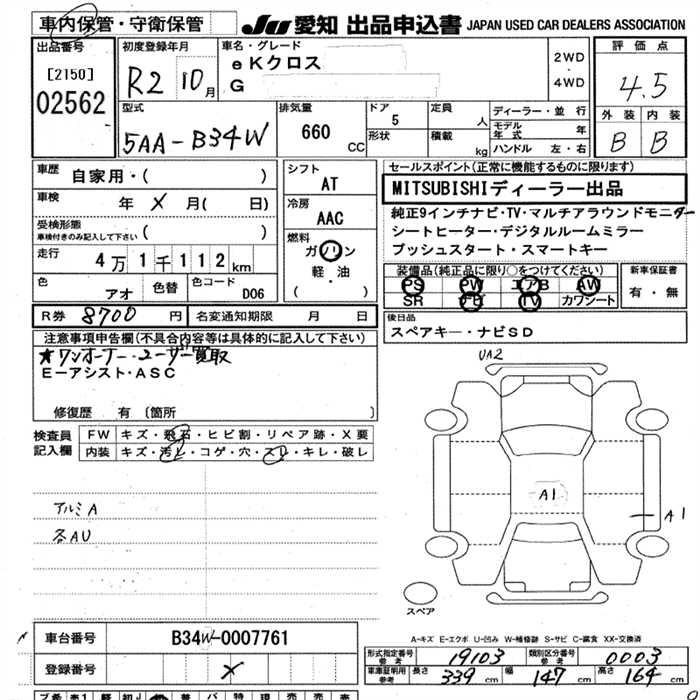 車内保管・守衛保管 JU 愛知 出品申込書 JAPAN USED CAR DEALERS ASSOCIATION
出品番号 [2150] 02562
初度登録年月 R2 10月
車名・グレード eKクロス G
2WD・4WD
評価点 4.5
外装 B 内装 B
型式 5AA-B34W
排気量 660 CC
ドア 5 形状
定員 人 積載 kg
ディーラー・並行
モデル年式 年
ハンドル 左・右
車歴 自家用・( )
車検 年 × 月( 日)
受検形態 車検付きのみ記入して下さい ( )
走行 4万1千112km
色 アオ 色替 色コード D06
シフト AT
冷房 AAC
燃料 ガソリン 軽・油 ( )
セールスポイント(正常に機能するものに限ります)
MITSUBISHIディーラー出品
純正9インチナビ・TV・マルチアラウンドモニター
シートヒーター・デジタルルームミラー
プッシュスタート・スマートキー
装備品(純正品に限り○をつけてください)
PS PW エアB AW
SR ナビ TV カワシート
新車保証書 有・無
R券 8700円 名変通知期限 月 日
後日品
スペアキー・ナビSD
注意事項申告欄(不具合内容等は具体的に記入して下さい)
★ワンオーナー・ユーザー買取
E-アシスト・ASC
修復歴 有〔箇所 〕
検査員記入欄
FW キズ・飛石・ヒビ割・リペア跡・X要
内装 キズ・汚レ・コゲ・穴・スレ・キレ・破レ
アルミA
各AU
UA2
A1
A1
スペア
A-キズ E-エクボ U-凹み W-補修跡 S-サビ C-腐食 XX-交換済
車台番号 B34W-0007761
登録番号 ×
形式指定番号 参考 19103 類別区分番号 参考 0003
車庫証明用 参考 長さ 339 cm 幅 147 cm 高さ 164 cm